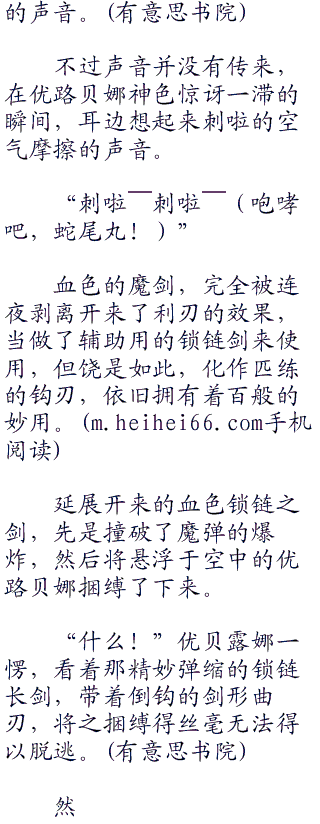 的声音。(有意思书院)
不过声音并没有传来，
在优路贝娜神色惊讶一滞的
瞬间，耳边想起来刺啦的空
气摩擦的声音。
“刺啦￣刺啦￣（咆哮
吧，蛇尾丸！）”
血色的魔剑，完全被连
夜剥离开来了利刃的效果，
当做了辅助用的锁链剑来使
用，但饶是如此，化作匹练
的钩刃，依旧拥有着百般的
妙用。(m.heihei66.com手机
阅读)
延展开来的血色锁链之
剑，先是撞破了魔弹的爆
炸，然后将悬浮于空中的优
路贝娜捆缚了下来。
“什么！”优贝露娜一
愣，看着那精妙弹缩的锁链
长剑，带着倒钩的剑形曲
刃，将之捆缚得丝毫无法得
以脱逃。(有意思书院)
然